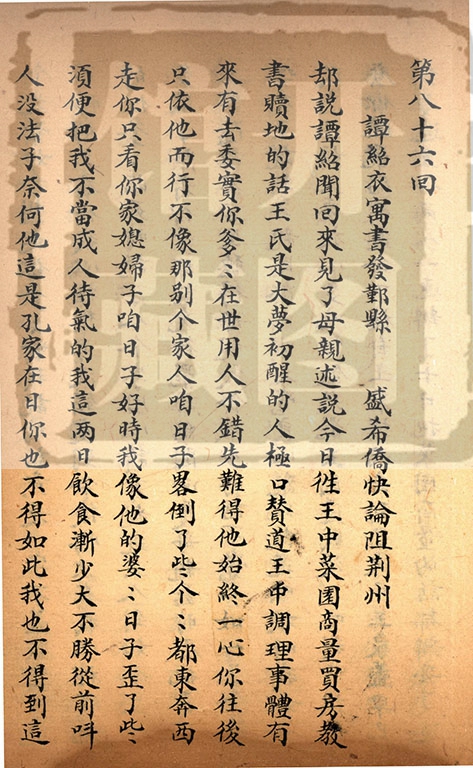 第八十六回
譚紹衣寓書發鄞縣 盛希僑快論阻荆州
却說譚紹聞回來見了母親述說今日徃王中菜園商量買房教
書贖地的話王氏是大夢初醒的人極口賛道王中調理事體有
來有去委實你爹〻在世用人不錯先難得他始終一心你往後
只依他而行不像那别个家人咱日子畧倒了些个〻都東奔西
走你只看你家媳婦子咱日子好時我像他的婆〻日子歪了些
湏便把我不當成人待氣的我這两日飲食漸少大不勝從前呌
人没法子奈何他這是孔家在日你也不得如此我也不得到這